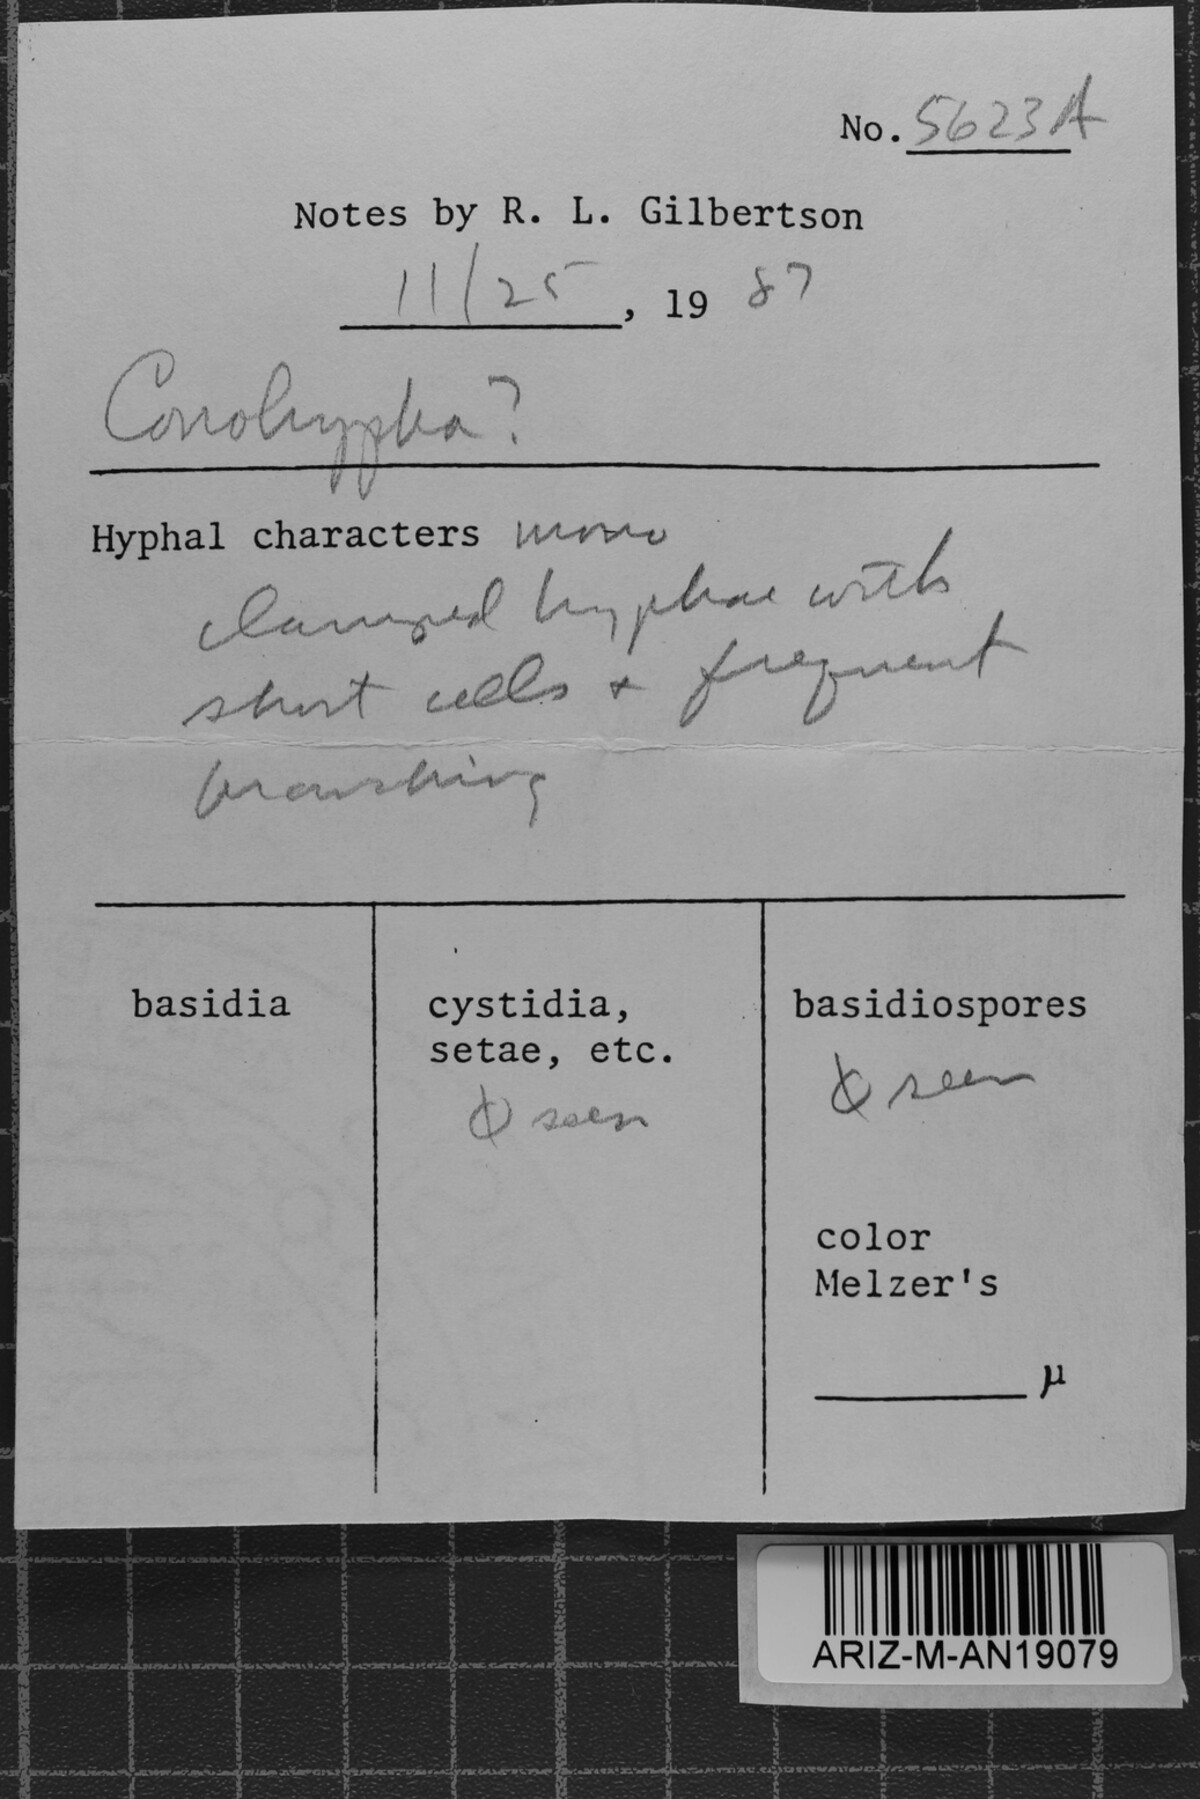 No. 5623A
Notes by R. L. Gilbertson
11/25, 19 87
Conohypha?
Hyphal characters mono
clamped hyphae with
short cells + frequent
branching
basidia
cystidia,
setae, etc.
∅ seen
basidiospores
∅ seen
color
Melzer's
µ
ARIZ-M-AN19079